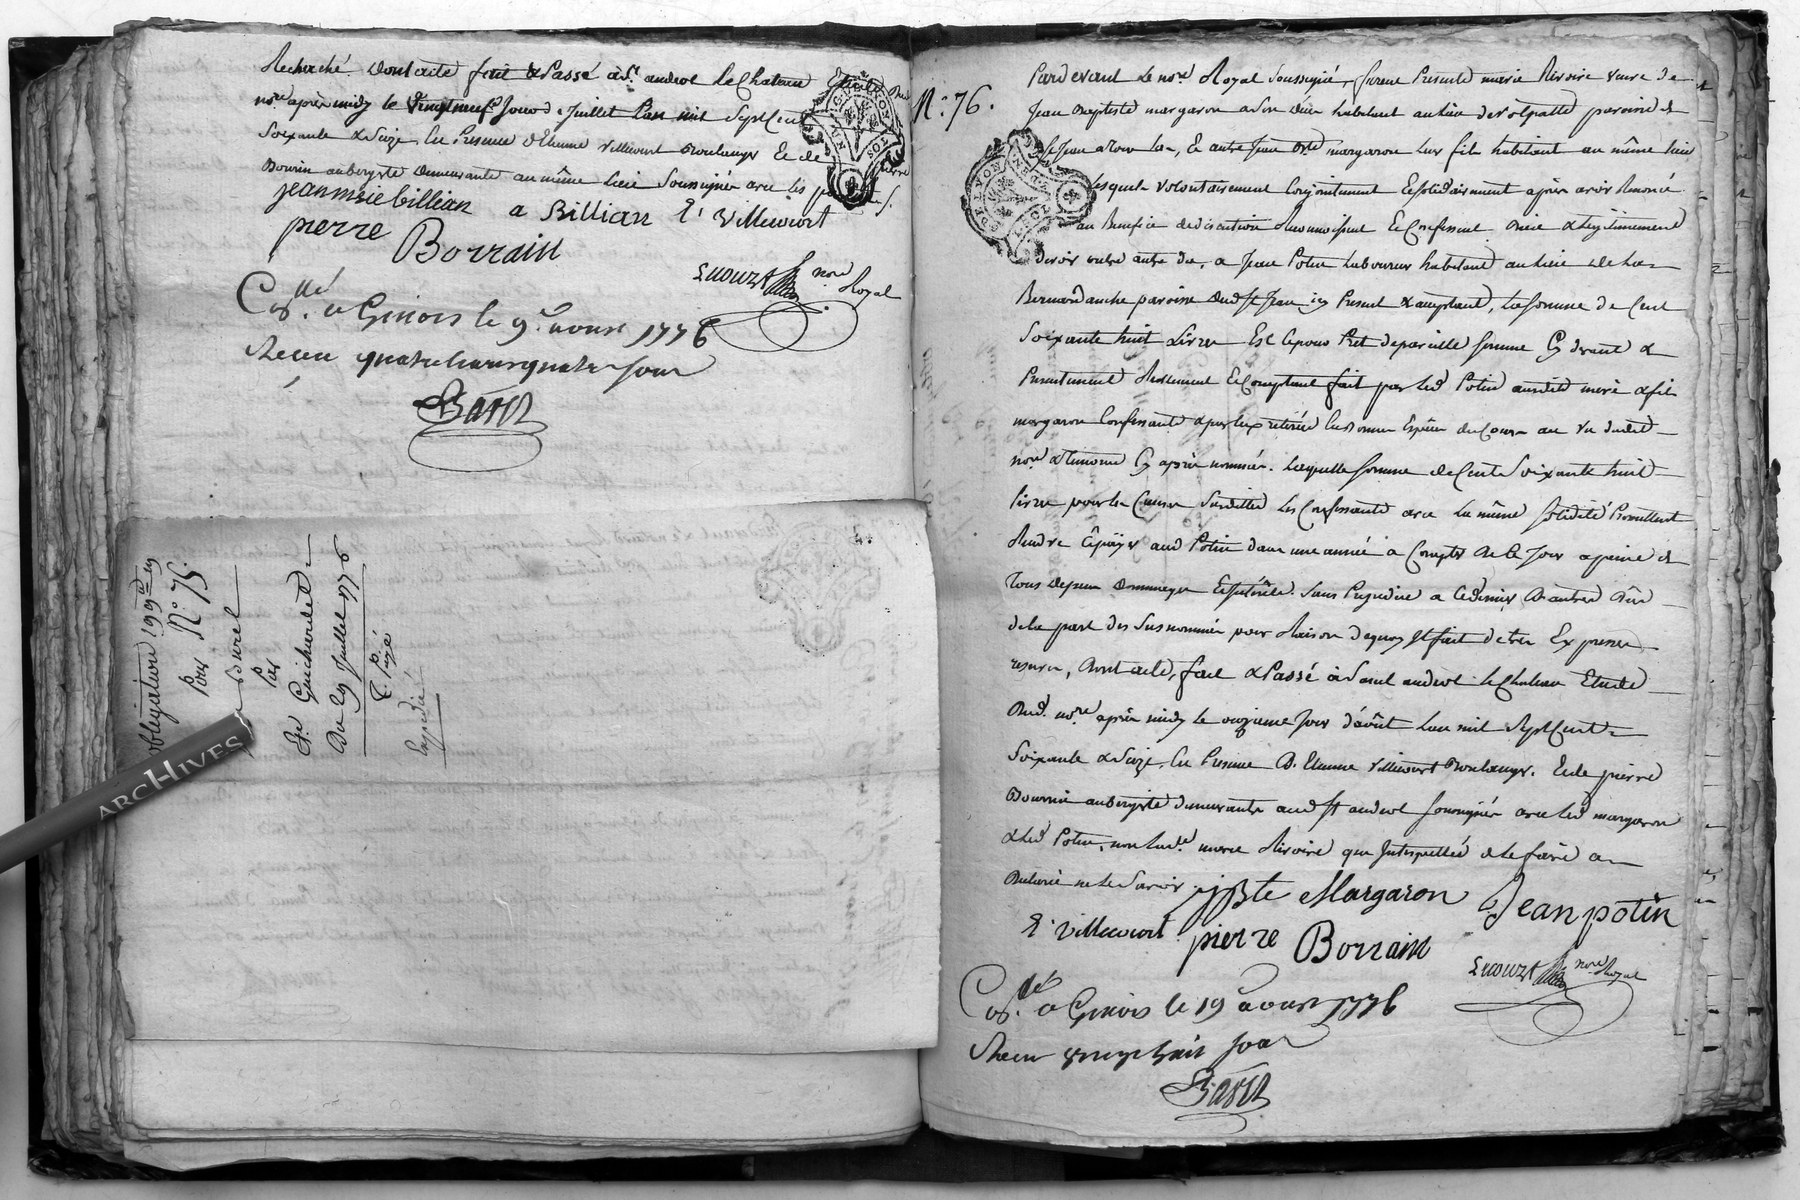 Recherché Dont acte fait & Passé à St. andeol le Chateau Etude dud
nore après midy le vingtneuf Jour de Juillet L'an mil Sept Cent
Soixante & Seize, En Presence d'Etienne Villecourt Boulanger Et de pierre
Bourin aubergiste Demeurants au même lieu Soussignés avec les parties
jeanmsie billian a Billian E. Villecourt
pierre Borrain
nore Royal
Collé. a Givors le 9e. aoust 1776
Recu quatre livres quatre sous
obligation 199
Pour N.° 75.
Burel
Par
Guicherdet
Du 29 Juillet 1776
Expedié
ARCHIVES
N.° 76.
Pardevant Le nore Royal Soussigné, furent Presents marie Rivoire veuve de
Jean Baptiste margaron a son deces habitant au lieu de volpatte paroisse de
St Jean a Tou las, Et autre Jean Bte margaron Leur fils habitant au même lieu
Lesquels volontairement Conjointement Et solidairement après avoir Renoncé
au Benefice de discution Reconnoissent Et Confessent Bien & légitimement
devoir outre autre du, a Jean Potin Laboureur habitant au Lieu de La
Bernardanche paroisse dud St Jean icy Present & acceptant, La somme de Cent
Soixante huit Livres Et Ce pour Pret de pareille somme Cy devant &
Presentement Reellement Et Comptant fait par led Potin auxdits mere & fils
margaron Confessants & par Eux retirée En bonnes Especes de Cours au vu dudit
nore & temoins Cy après nommés. Laquelle somme de Cent Soixante huit
livres pour les Causes Susdittes Les Confessants avec La même solidité Promettent
Rendre & payer aud Potin dans une année a Compter de Ce Jour a peine de
Tous depens dommages Et Interêts. Sans Prejudice a Ce dernier d'autres Dûs
de la part des Susnommés pour Raison de quoy Il fait de tres Expresses
reserves, Dont acte, fait & Passé à Saint andeol le Chateau Etude
Dud. nore après midy le onzieme Jour d'août L'an mil Sept Cent
Soixante & Seize, En Presence D. Etienne Villecourt Boulanger. Et de pierre
Bourrin aubergiste demeurants aud St andeol soussignés avec led margaron
& led Potin, non lad.e marie Rivoire qui Interpellée de le faire a
Declaré ne le Savoir. jBte Margaron Jean potin
E. Villecourt pierre Borrain
nore Royal
Collé. a Givors le 19 aoust 1776
Recu vingt huit sous